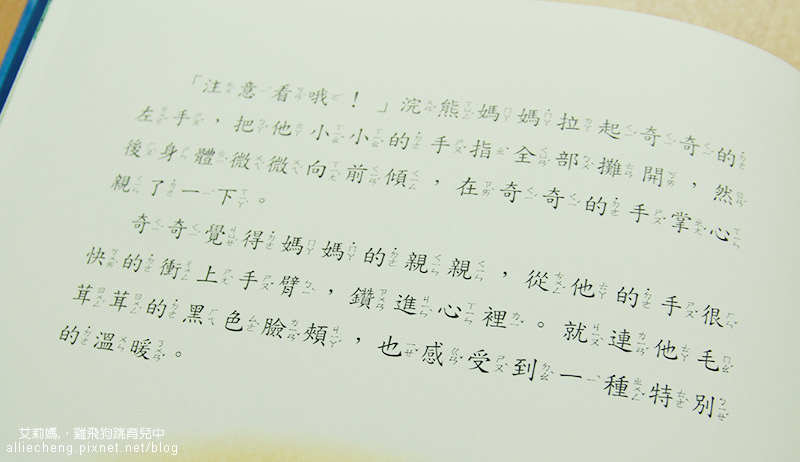 「注意看哦！」浣熊媽媽拉起奇奇的
左手，把他小小的手指全部攤開，然
後身體微微向前傾，在奇奇的手掌心
親了一下。
奇奇覺得媽媽的親親，從他的手很
快的衝上手臂，鑽進心裡。就連他毛
茸茸的黑色臉頰，也感受到一種特別
的溫暖。
艾莉媽.‧雞飛狗跳育兒中
alliecheng.pixnet.net/blog